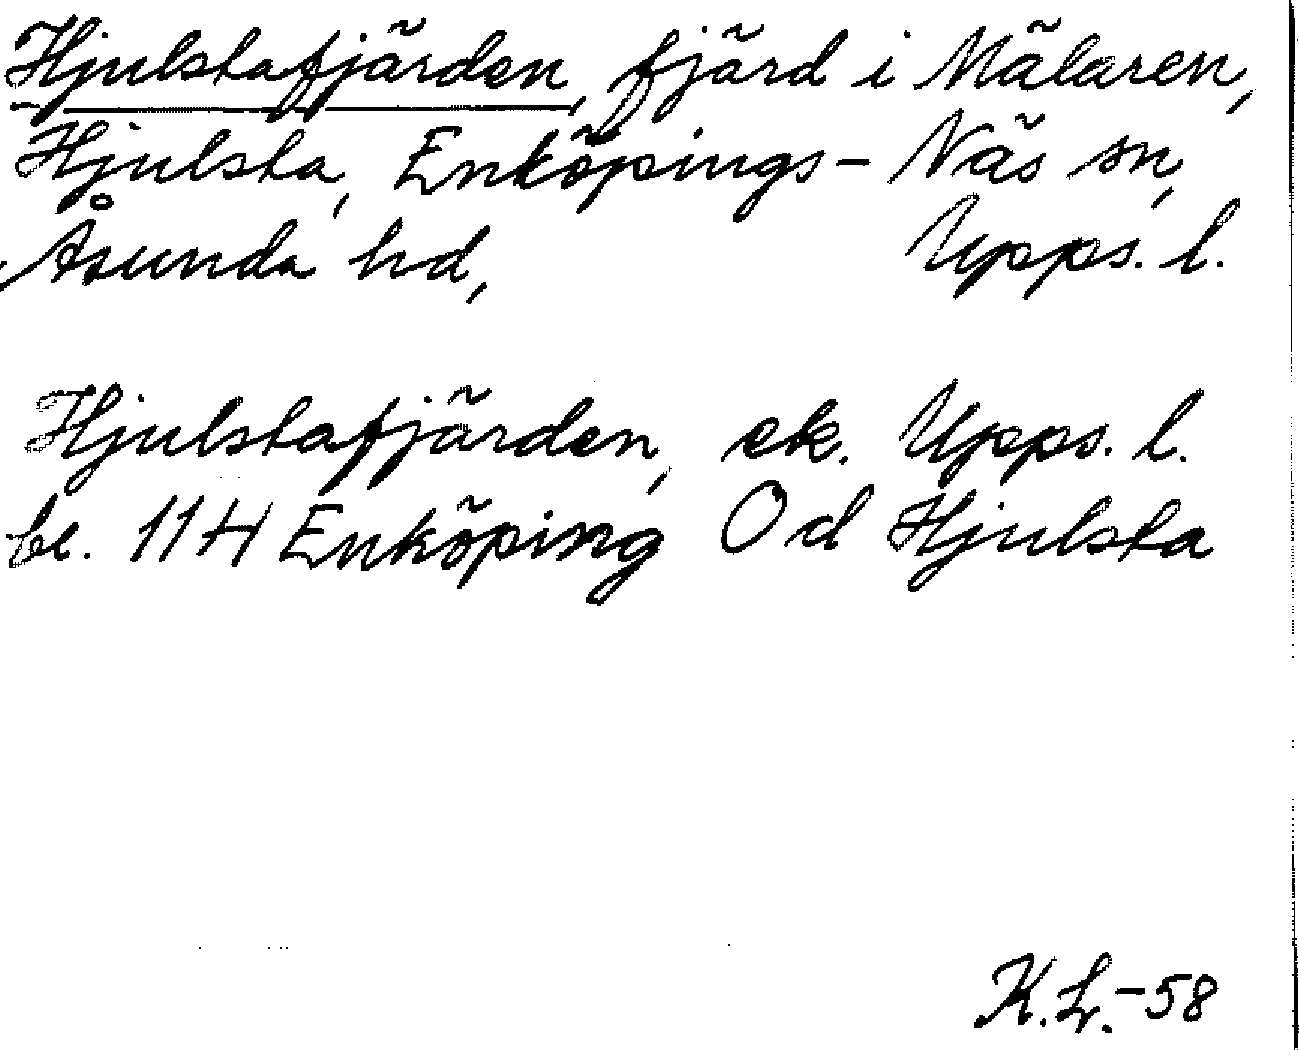 Hjulstafjärden, fjärd i Mälaren,
Hjulsta, Enköpings-Näs sn,
Åsunda hd, Upps. l.
Hjulstafjärden, ek. Upps. l.
bl. 11H Enköping Od Hjulsta
K.L.-58